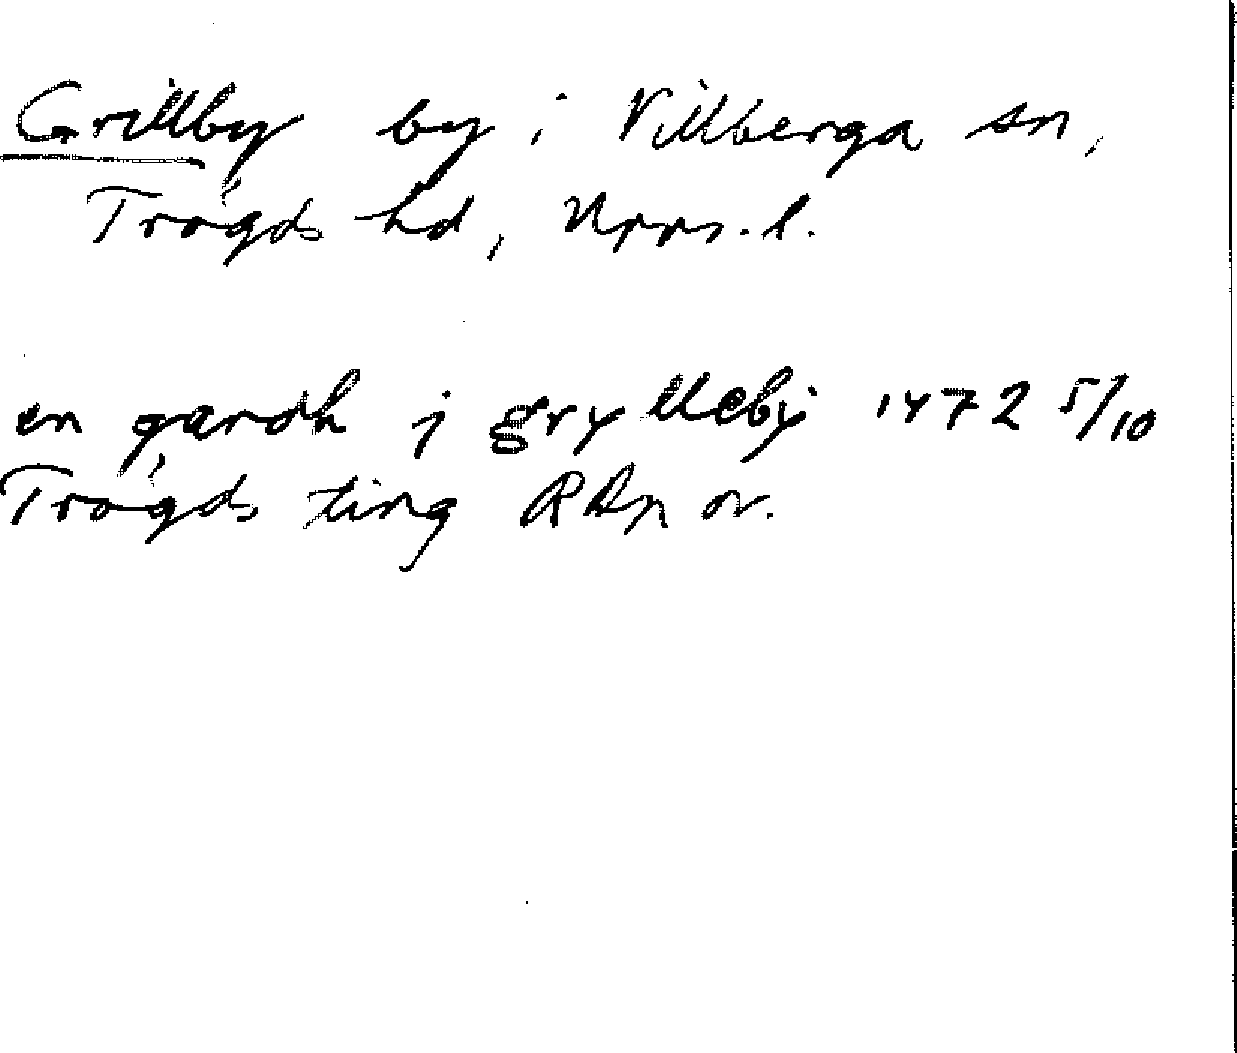 Grillby by i Villberga sn,
Trögds hd, Upps. l.
en gardh j grylleby 1472 5/10
Trögds ting RAp or.